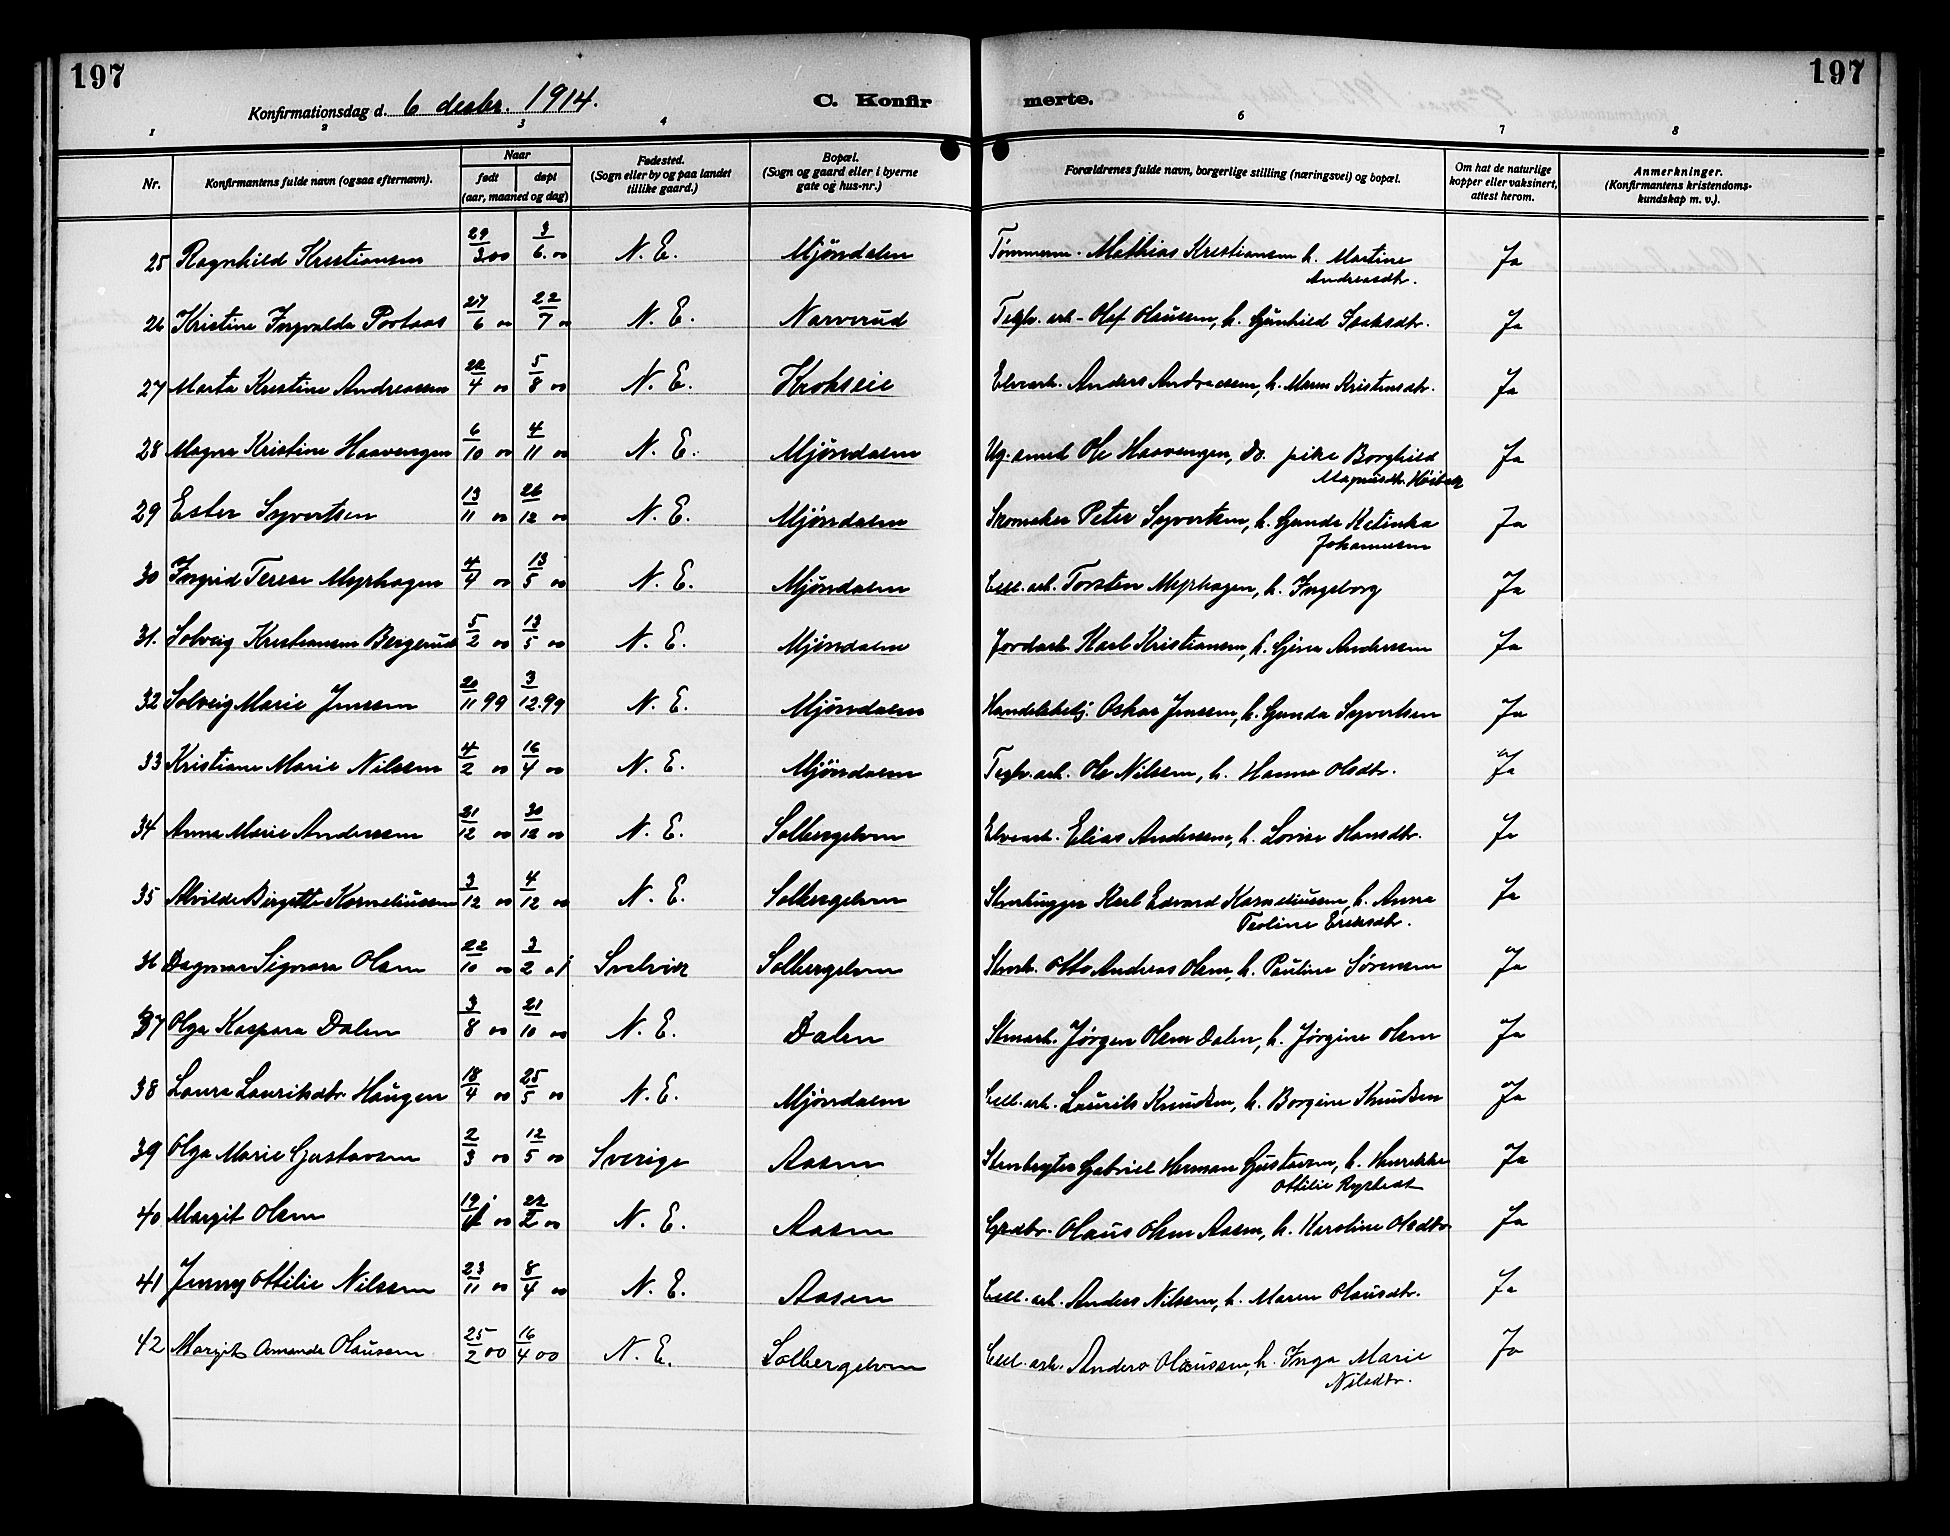 197
197
Konfirmationsdag d. 6 desbr. 1914.
C. Konfir merte.
1 2 3 4 6 7 8
Nr. Konfirmantens fulde navn (ogsaa efternavn). Naar født døpt (aar, maaned og dag) Fødested. (Sogn eller by og paa landet tillike gaard.) Bopæl. (Sogn og gaard eller i byerne gate og hus-nr.) Forældrenes fulde navn, borgerlige stilling (næringsvei) og bopæl. Om hat de naturlige kopper eller vaksinert, attest herom. Anmerkninger. (Konfirmantens kristendomskundskap m. v.).
25 Ragnhild Kristiansen 29/3.00 3/6.00 N. E. Mjøndalen Tømmerm. Mathias Kristiansen h. Martine Ja
Andreasdtr.
26 Kristine Ingvalda Portaas 27/6 00 22/7 00 N. E. Narverud Teglv. arb. Olaf Olausen, h. Gunhild Ja
27 Marta Kristine Andreassen 22/4 00 5/8 00 N. E. Krokseie Elvearb. Anders Andreasen, h. Maren Kristensdtr. Ja
28 Magna Kristine Haavengen 6/10 00 4/11 00 N. E. Mjøndalen Ug. smed Ole Haavengen, do. pike Borghild Ja
Magnusdtr.
29 Ester Syvertsen 13/11 00 26/12 00 N. E. Mjøndalen Skomaker Peter Syvertsen, h. Gunda Katinka Ja
Johannesen
30 Ingrid Terese Myrhagen 4/4 00 13/5 00 N. E. Mjøndalen Cell. arb. Torsten Myrhagen, h. Ingeborg Ja
31. Solveig Kristiansen Bergerud 5/2 00 13/5 00 N. E. Mjøndalen Jordarb. Karl Kristiansen, h. Gina Andersen Ja
32 Solveig Marie Jensen 20/11 99 3/12.99 N. E. Mjøndalen Handelsbetj. Oskar Jensen, h. Gunda Syvertsen Ja
33 Kristiane Marie Nilsen 4/2 00 16/4 00 N. E. Mjöndalen Teglv. arb. Ole Nilsen, h. Hanna Olsdtr. Ja
34 Anna Marie Andersen 21/12 00 30/12 00 N. E. Solbergelven Elvearb. Elias Andersen, h. Lovise Hansdtr. Ja
35 Alvilde Birgitte Korneliussen 3/12 00 4/12 00 N. E. Solbergelven Stenhugger Karl Edvard Korneliussen, h. Anna Ja
Teoline Eriksdtr.
36 Dagmar Signora Olsen 22/10 00 3/2 01 Svelvik Solbergelven Stenarb. Otto Andreas Olsen, h. Pauline Sørensen Ja
37 Olga Kaspara Dalen 3/8 00 21/10 00 N. E. Dalen Stenarb. Jørgen Olsen Dalen, h. Jørgine Olsen Ja
38 Laura Lauritsdtr. Haugen 18/4 00 25/5 00 N. E. Mjøndalen Cell. arb. Laurits Knudsen, h. Borgine Knudsen Ja
39 Olga Marie Gustavsen 2/3 00 12/5 00 Sverige Aasen Stenbryter Gabriel Herman Gustavsen, h. Henrikke Ja
Ottilie
40 Margit Olsen 19/1 00 22/2 00 N. E. Aasen Grdbr. Olaus Olsen Aasen, h. Karoline Olsdtr. Ja
41 Jenny Ottilie Nilssen 23/11 00 8/4 00 N. E. Aasen Cell. arb. Anders Nilsen, h. Maren Olausdtr. Ja
42 Margit Amanda Olausen 25/2 00 16/4 00 N. E. Solbergelven Cell. arb. Anders Olaussen, h. Inga Marie Ja
Nilsdtr.